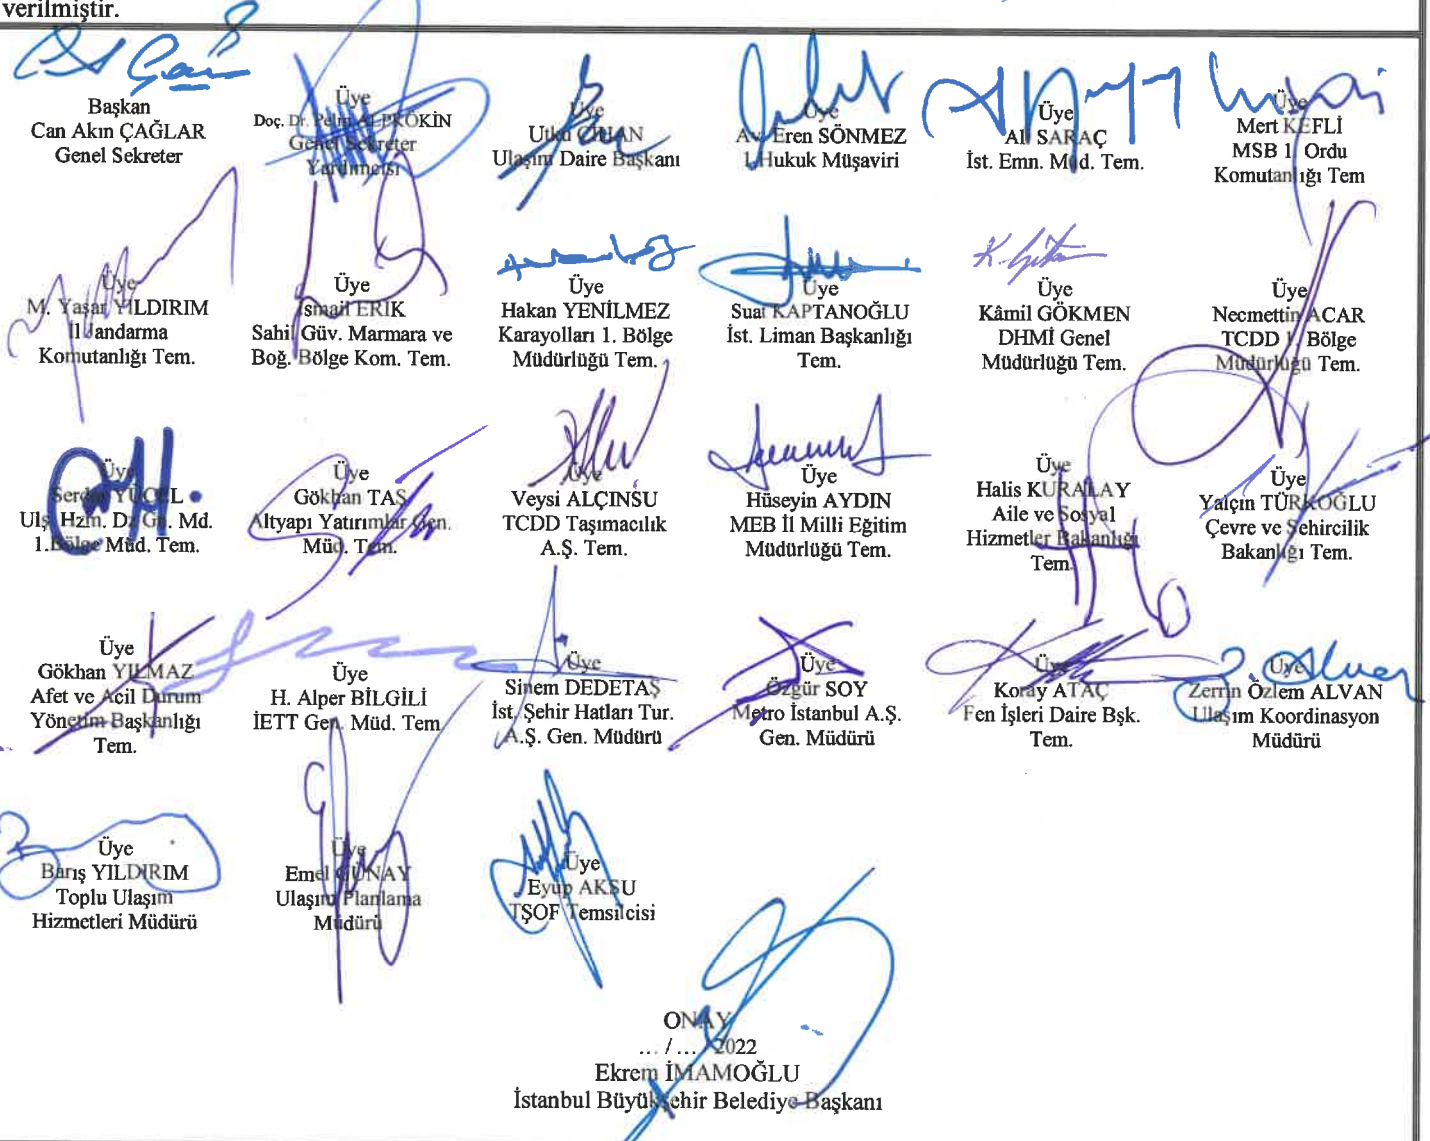 verilmiştir.
Başkan
Can Akın ÇAĞLAR
Genel Sekreter
Üye
Doç. Dr. Pelin ALPKÖKİN
Genel Sekreter
Yardımcısı
Üye
Utku CİHAN
Ulaşım Daire Başkanı
Üye
Av. Eren SÖNMEZ
1.Hukuk Müşaviri
Üye
Ali SARAÇ
İst. Emn. Müd. Tem.
Üye
Mert KEFLİ
MSB 1. Ordu
Komutanlığı Tem
Üye
M. Yaşar YILDIRIM
İl Jandarma
Komutanlığı Tem.
Üye
İsmail ERİK
Sahil Güv. Marmara ve
Boğ. Bölge Kom. Tem.
Üye
Hakan YENİLMEZ
Karayolları 1. Bölge
Müdürlüğü Tem.
Üye
Suat KAPTANOĞLU
İst. Liman Başkanlığı
Tem.
Üye
Kâmil GÖKMEN
DHMİ Genel
Müdürlüğü Tem.
Üye
Necmettin ACAR
TCDD 1. Bölge
Müdürlüğü Tem.
Üye
Serdar YÜCEL
Ulş. Hzm. Dz Gn. Md.
1.Bölge Müd. Tem.
Üye
Gökhan TAŞ
Altyapı Yatırımlar Gen.
Müd. Tem.
Üye
Veysi ALÇINSU
TCDD Taşımacılık
A.Ş. Tem.
Üye
Hüseyin AYDIN
MEB İl Milli Eğitim
Müdürlüğü Tem.
Üye
Halis KURALAY
Aile ve Sosyal
Hizmetler Bakanlığı
Tem.
Üye
Yalçın TÜRKOĞLU
Çevre ve Şehircilik
Bakanlığı Tem.
Üye
Gökhan YILMAZ
Afet ve Acil Durum
Yönetim Başkanlığı
Tem.
Üye
H. Alper BİLGİLİ
İETT Gen. Müd. Tem
Üye
Sinem DEDETAŞ
İst. Şehir Hatları Tur.
A.Ş. Gen. Müdürü
Üye
Özgür SOY
Metro İstanbul A.Ş.
Gen. Müdürü
Üye
Koray ATAÇ
Fen İşleri Daire Bşk.
Tem.
Üye
Zerrin Özlem ALVAN
Ulaşım Koordinasyon
Müdürü
Üye
Barış YILDIRIM
Toplu Ulaşım
Hizmetleri Müdürü
Üye
Emel GÜNAY
Ulaşım Planlama
Müdürü
Üye
Eyup AKSU
TŞOF Temsilcisi
ONAY
... / ... / 2022
Ekrem İMAMOĞLU
İstanbul Büyükşehir Belediye Başkanı